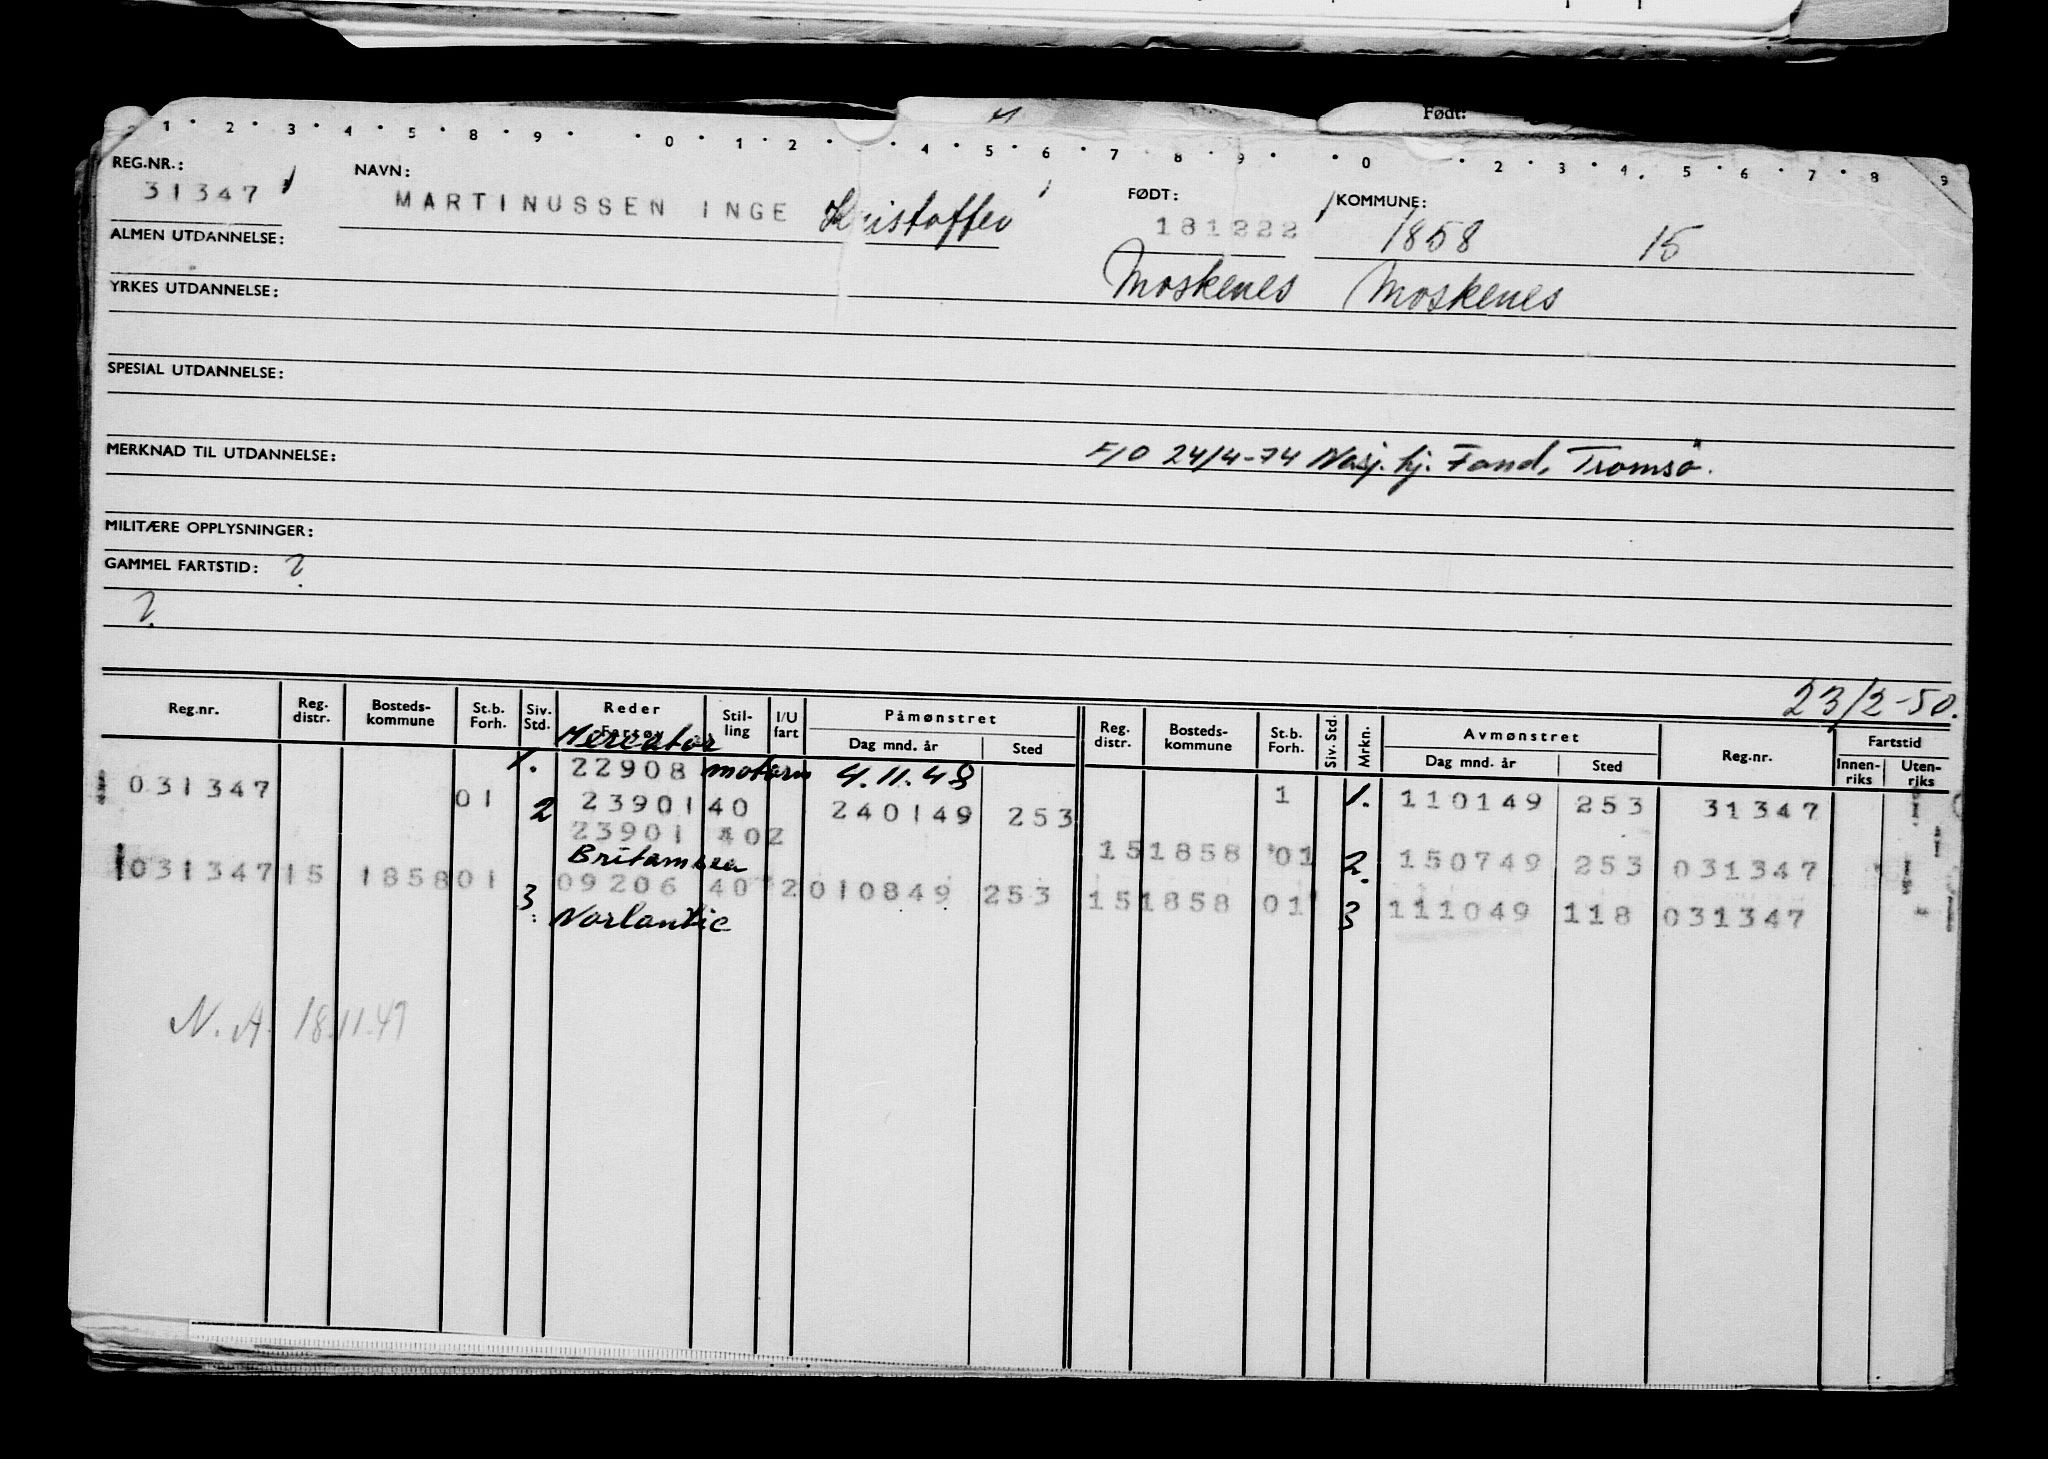 Født:
1 · 2 · 3 · 4 · 5 · 8 · 9 · · 0 · 1 · 2 · 4 · 5 · 6 · 7 · 8 · 9 · · 0 · 2 · 3 · 4 · 5 · 6 · 7 · 8 9
REG.NR.: NAVN: FØDT: KOMMUNE:
31347 MARTINUSSEN INGE Kristoffer 181222 1858 15
ALMEN UTDANNELSE: Moskenes Moskenes
YRKES UTDANNELSE:
SPESIAL UTDANNELSE:
MERKNAD TIL UTDANNELSE: F/O 24/4-74 Nasj. hj. Fond, Tromsø.
MILITÆRE OPPLYSNINGER:
GAMMEL FARTSTID: ?
?
23/2-50.
Reg.nr. Reg. distr. Bosteds-kommune St.b. Forh. Siv. Std. Reder Stil-ling I/U fart Påmønstret Dag mnd. år Sted Reg. distr. Bosteds-kommune St.b. Forh. Siv. Std. Mrkn. Avmønstret Dag mnd. år Sted Reg.nr. Fartstid Innen-riks Uten-riks
Mercator
1. 22908 motorm 4.11.48
031347 01 2 23901 40 240149 253 1 1. 110149 253 31347
23901 402 151858 01 2. 150749 253 031347
Britamsea
031347 15 1858 01 09206 40 2 010849 253 151858 01 3 111049 118 031347
3. Norlantic
N.A. 18.11.49